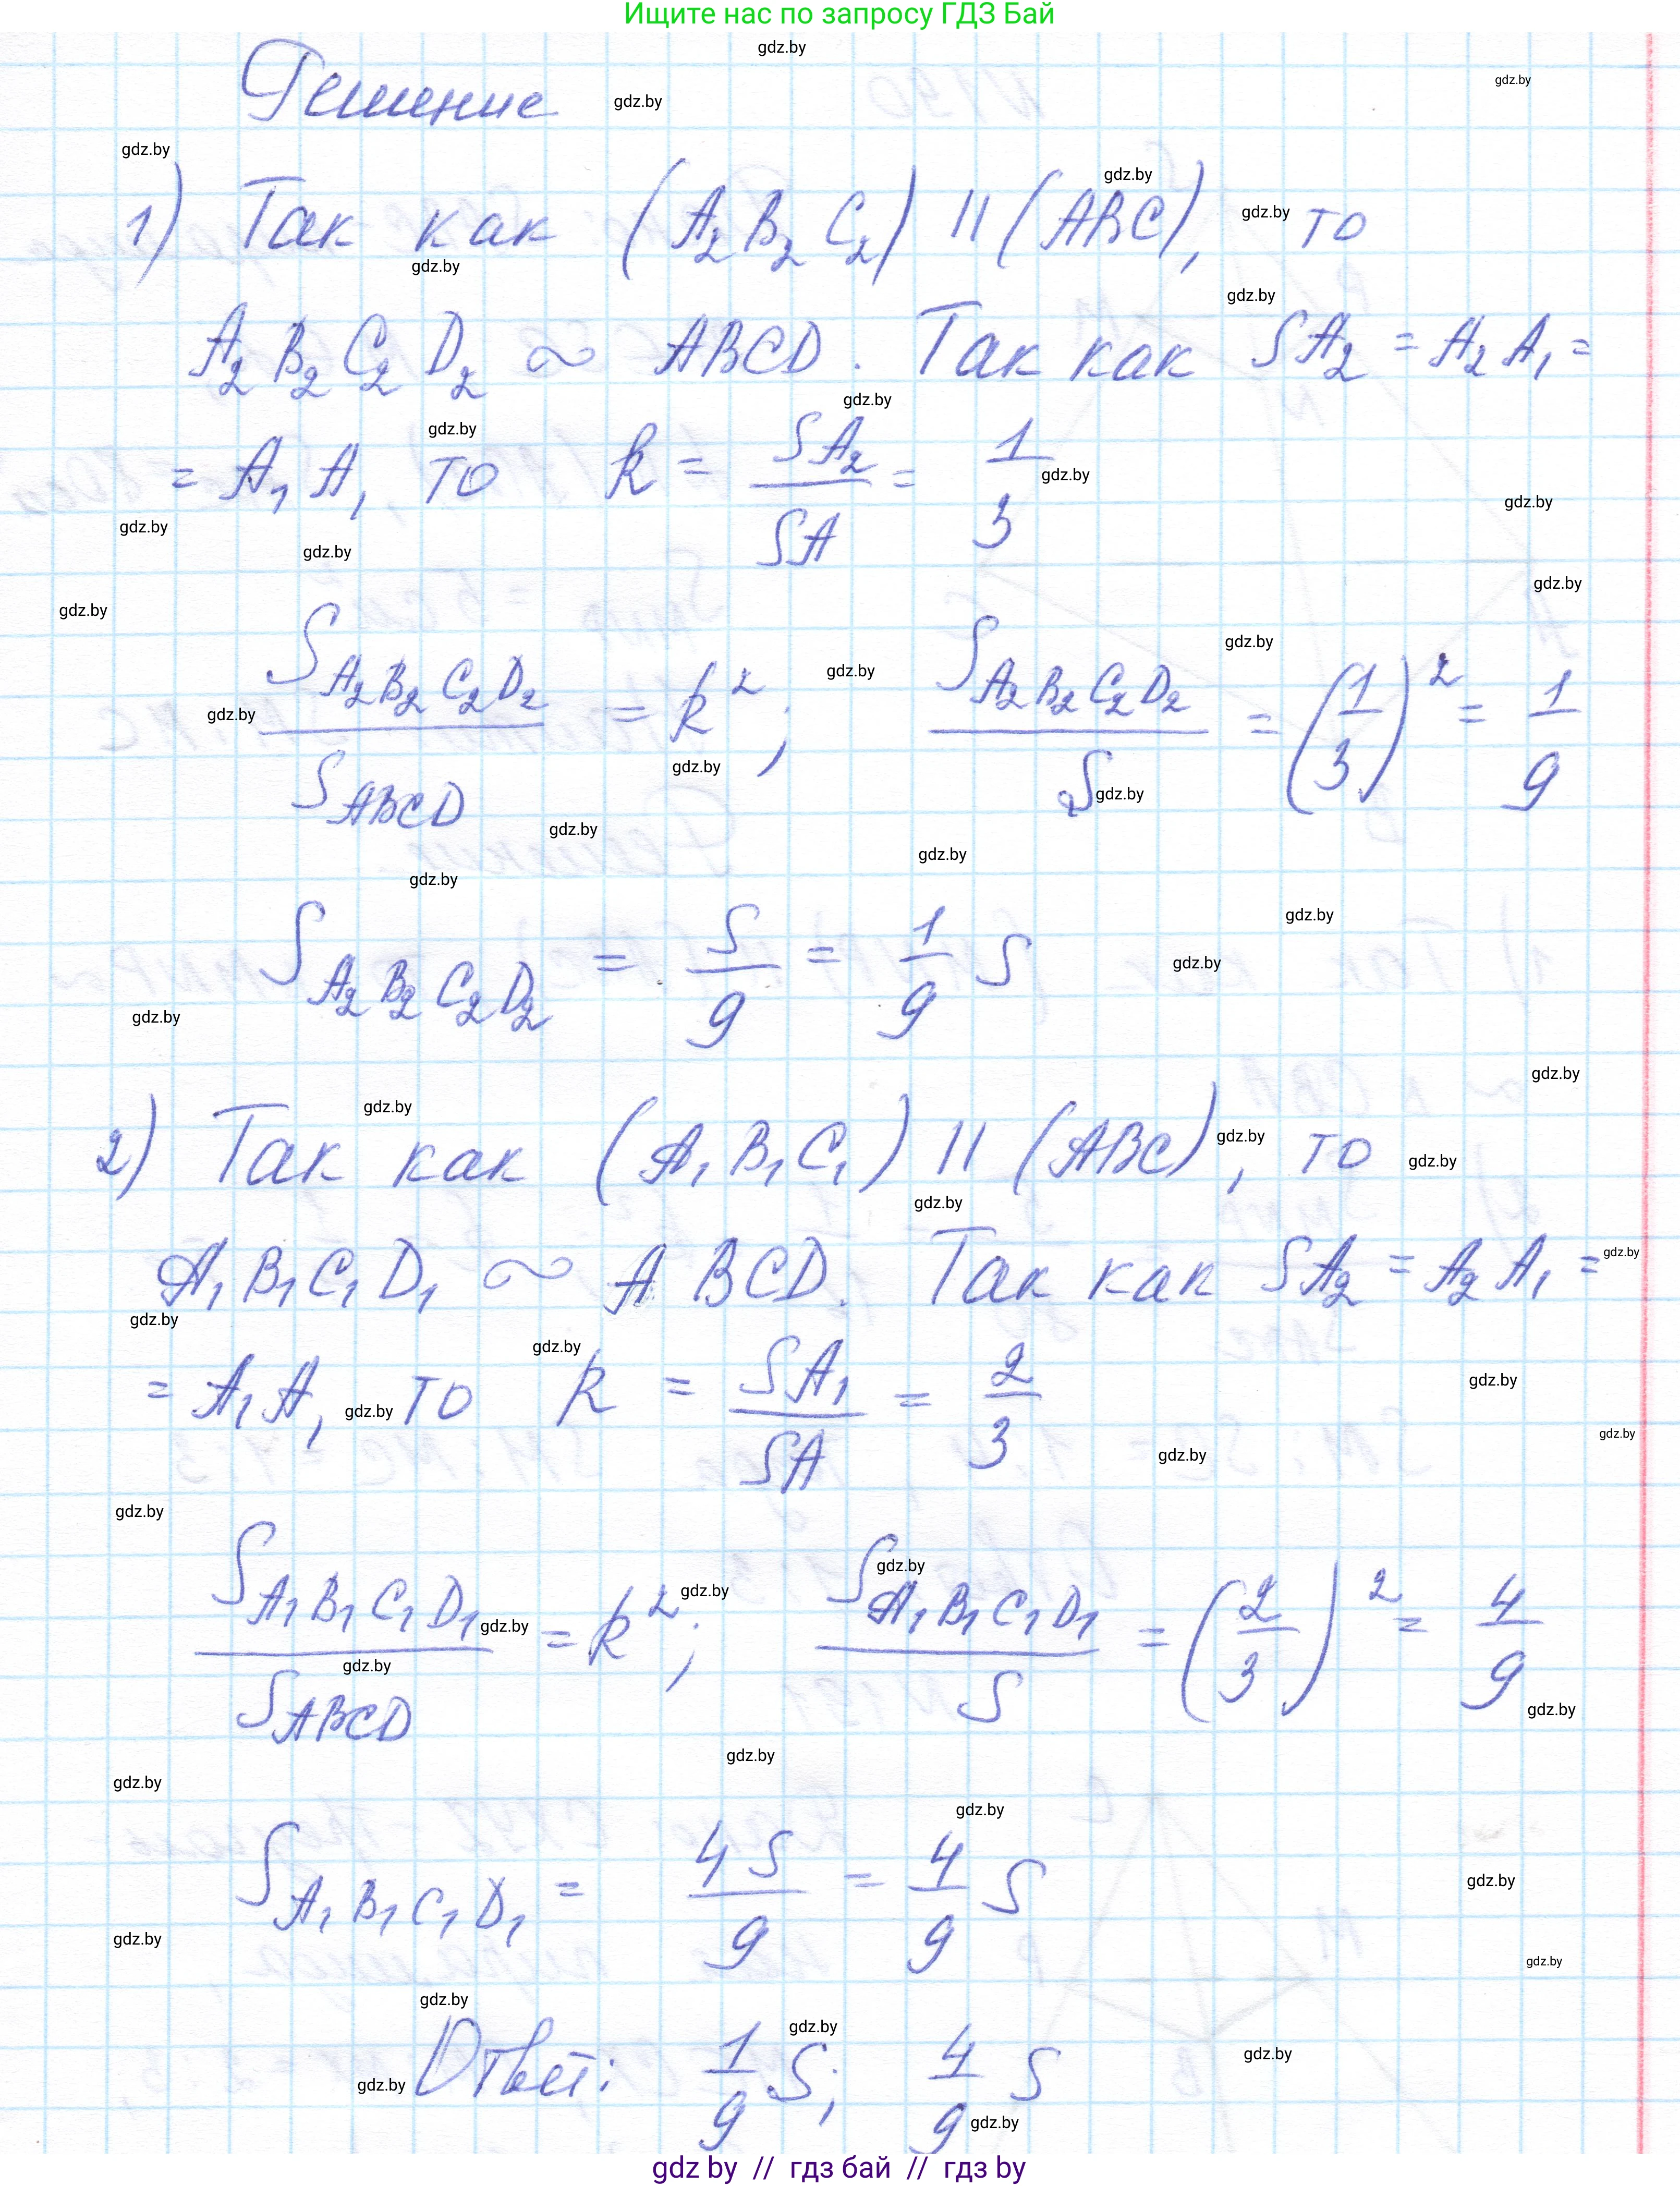 Ищите нас по запросу ГДЗ Бай
Решение
1) Так как (A₂B₂C₂) || (ABC), то
A₂B₂C₂D₂ ∼ ABCD. Так как SA₂ = A₂A₁ =
= A₁A, то k = SA₂/SA = 1/3
S_A₂B₂C₂D₂/S_ABCD = k²; S_A₂B₂C₂D₂/S = (1/3)² = 1/9
S_A₂B₂C₂D₂ = S/9 = 1/9 S
2) Так как (A₁B₁C₁) || (ABC), то
A₁B₁C₁D₁ ∼ ABCD. Так как SA₂ = A₂A₁ =
= A₁A, то k = SA₁/SA = 2/3
S_A₁B₁C₁D₁/S_ABCD = k²; S_A₁B₁C₁D₁/S = (2/3)² = 4/9
S_A₁B₁C₁D₁ = 4S/9 = 4/9 S
Ответ: 1/9 S; 4/9 S
gdz by // гдз бай // гдз by